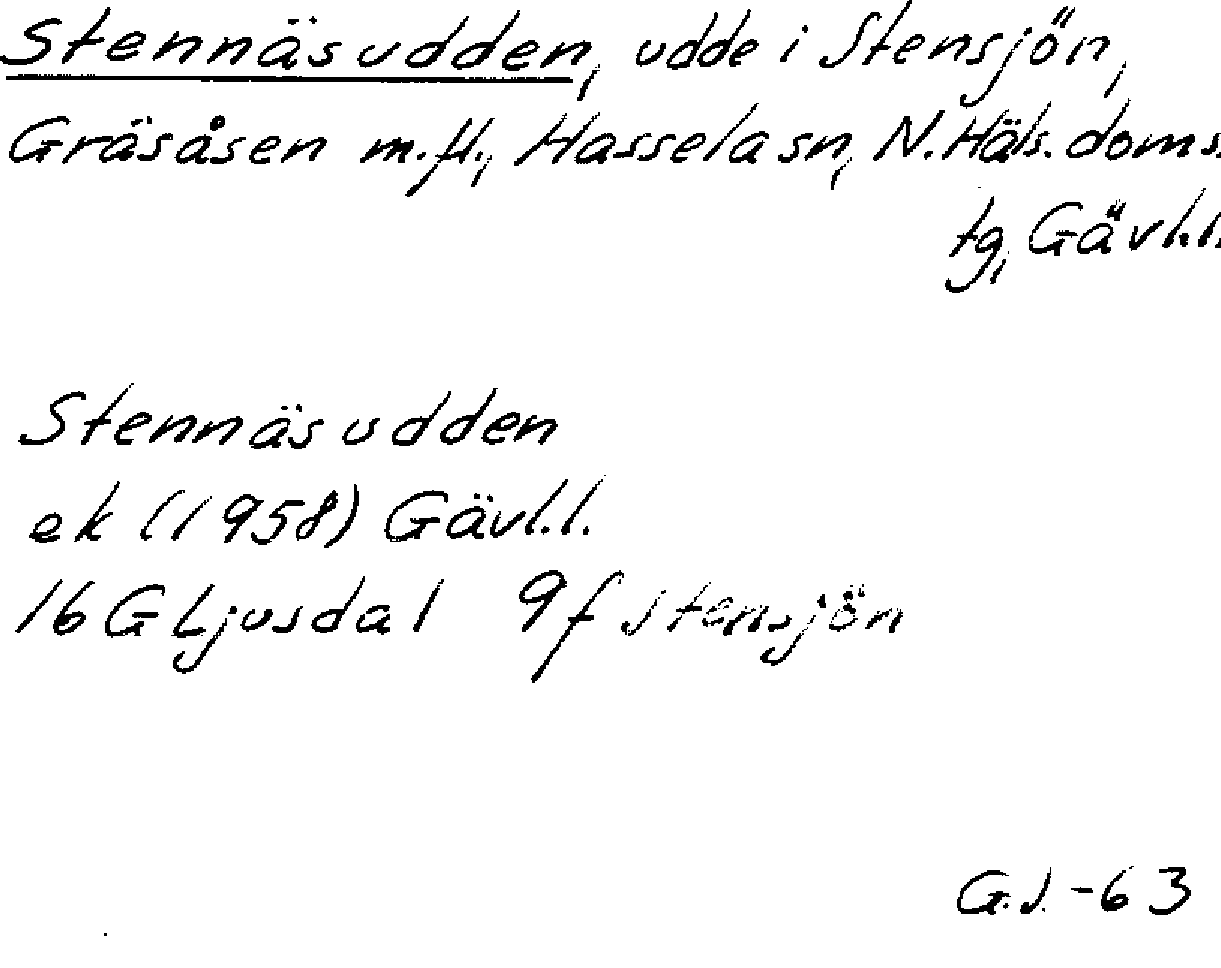 Stennäsudden, udde i Stensjön,
Gräsåsen m.fl., Hassela sn, N. Häls. doms.
tg, Gävl.l.
Stennäsudden
ek (1958) Gävl.l.
16 G Ljusdal 9f Stensjön
G.J. -63